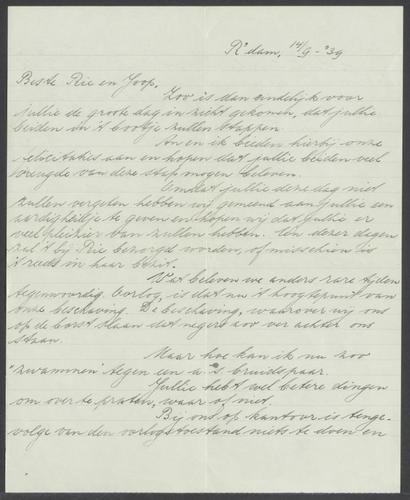 R'dam, 14/9-'39
Beste Rie en Joop,
Zoo is dan eindelijk voor
jullie de groote dag in zicht gekomen, dat jullie
beiden in 't bootje zullen stappen.
An en ik bieden hierbij onze
felicitaties aan en hopen dat jullie beiden veel
vreugde van deze stap mogen beleven.
Omdat jullie deze dag niet
zullen vergeten hebben wij gemeend aan jullie een
aardigheidje te geven en hopen wij dat jullie er
veel plezier van zullen hebben. Een dezer dagen
zal 't bij Rie bezorgd worden, of misschien is
't reeds in haar bezit.
Wat beleven we anders rare tijden
tegenwoordig. Oorlog, is dat nu 't hoogtepunt van
onze beschaving. De beschaving, waarover wij ons
op de borst slaan dat negers zoo ver achter ons
staan.
Maar hoe kan ik nu zoo
"zwammen" tegen een a.s. bruidspaar.
Jullie hebt wel betere dingen
om over te praten, waar of niet.
Bij ons op kantoor is tenge-
volge van den oorlogstoestand niets te doen en